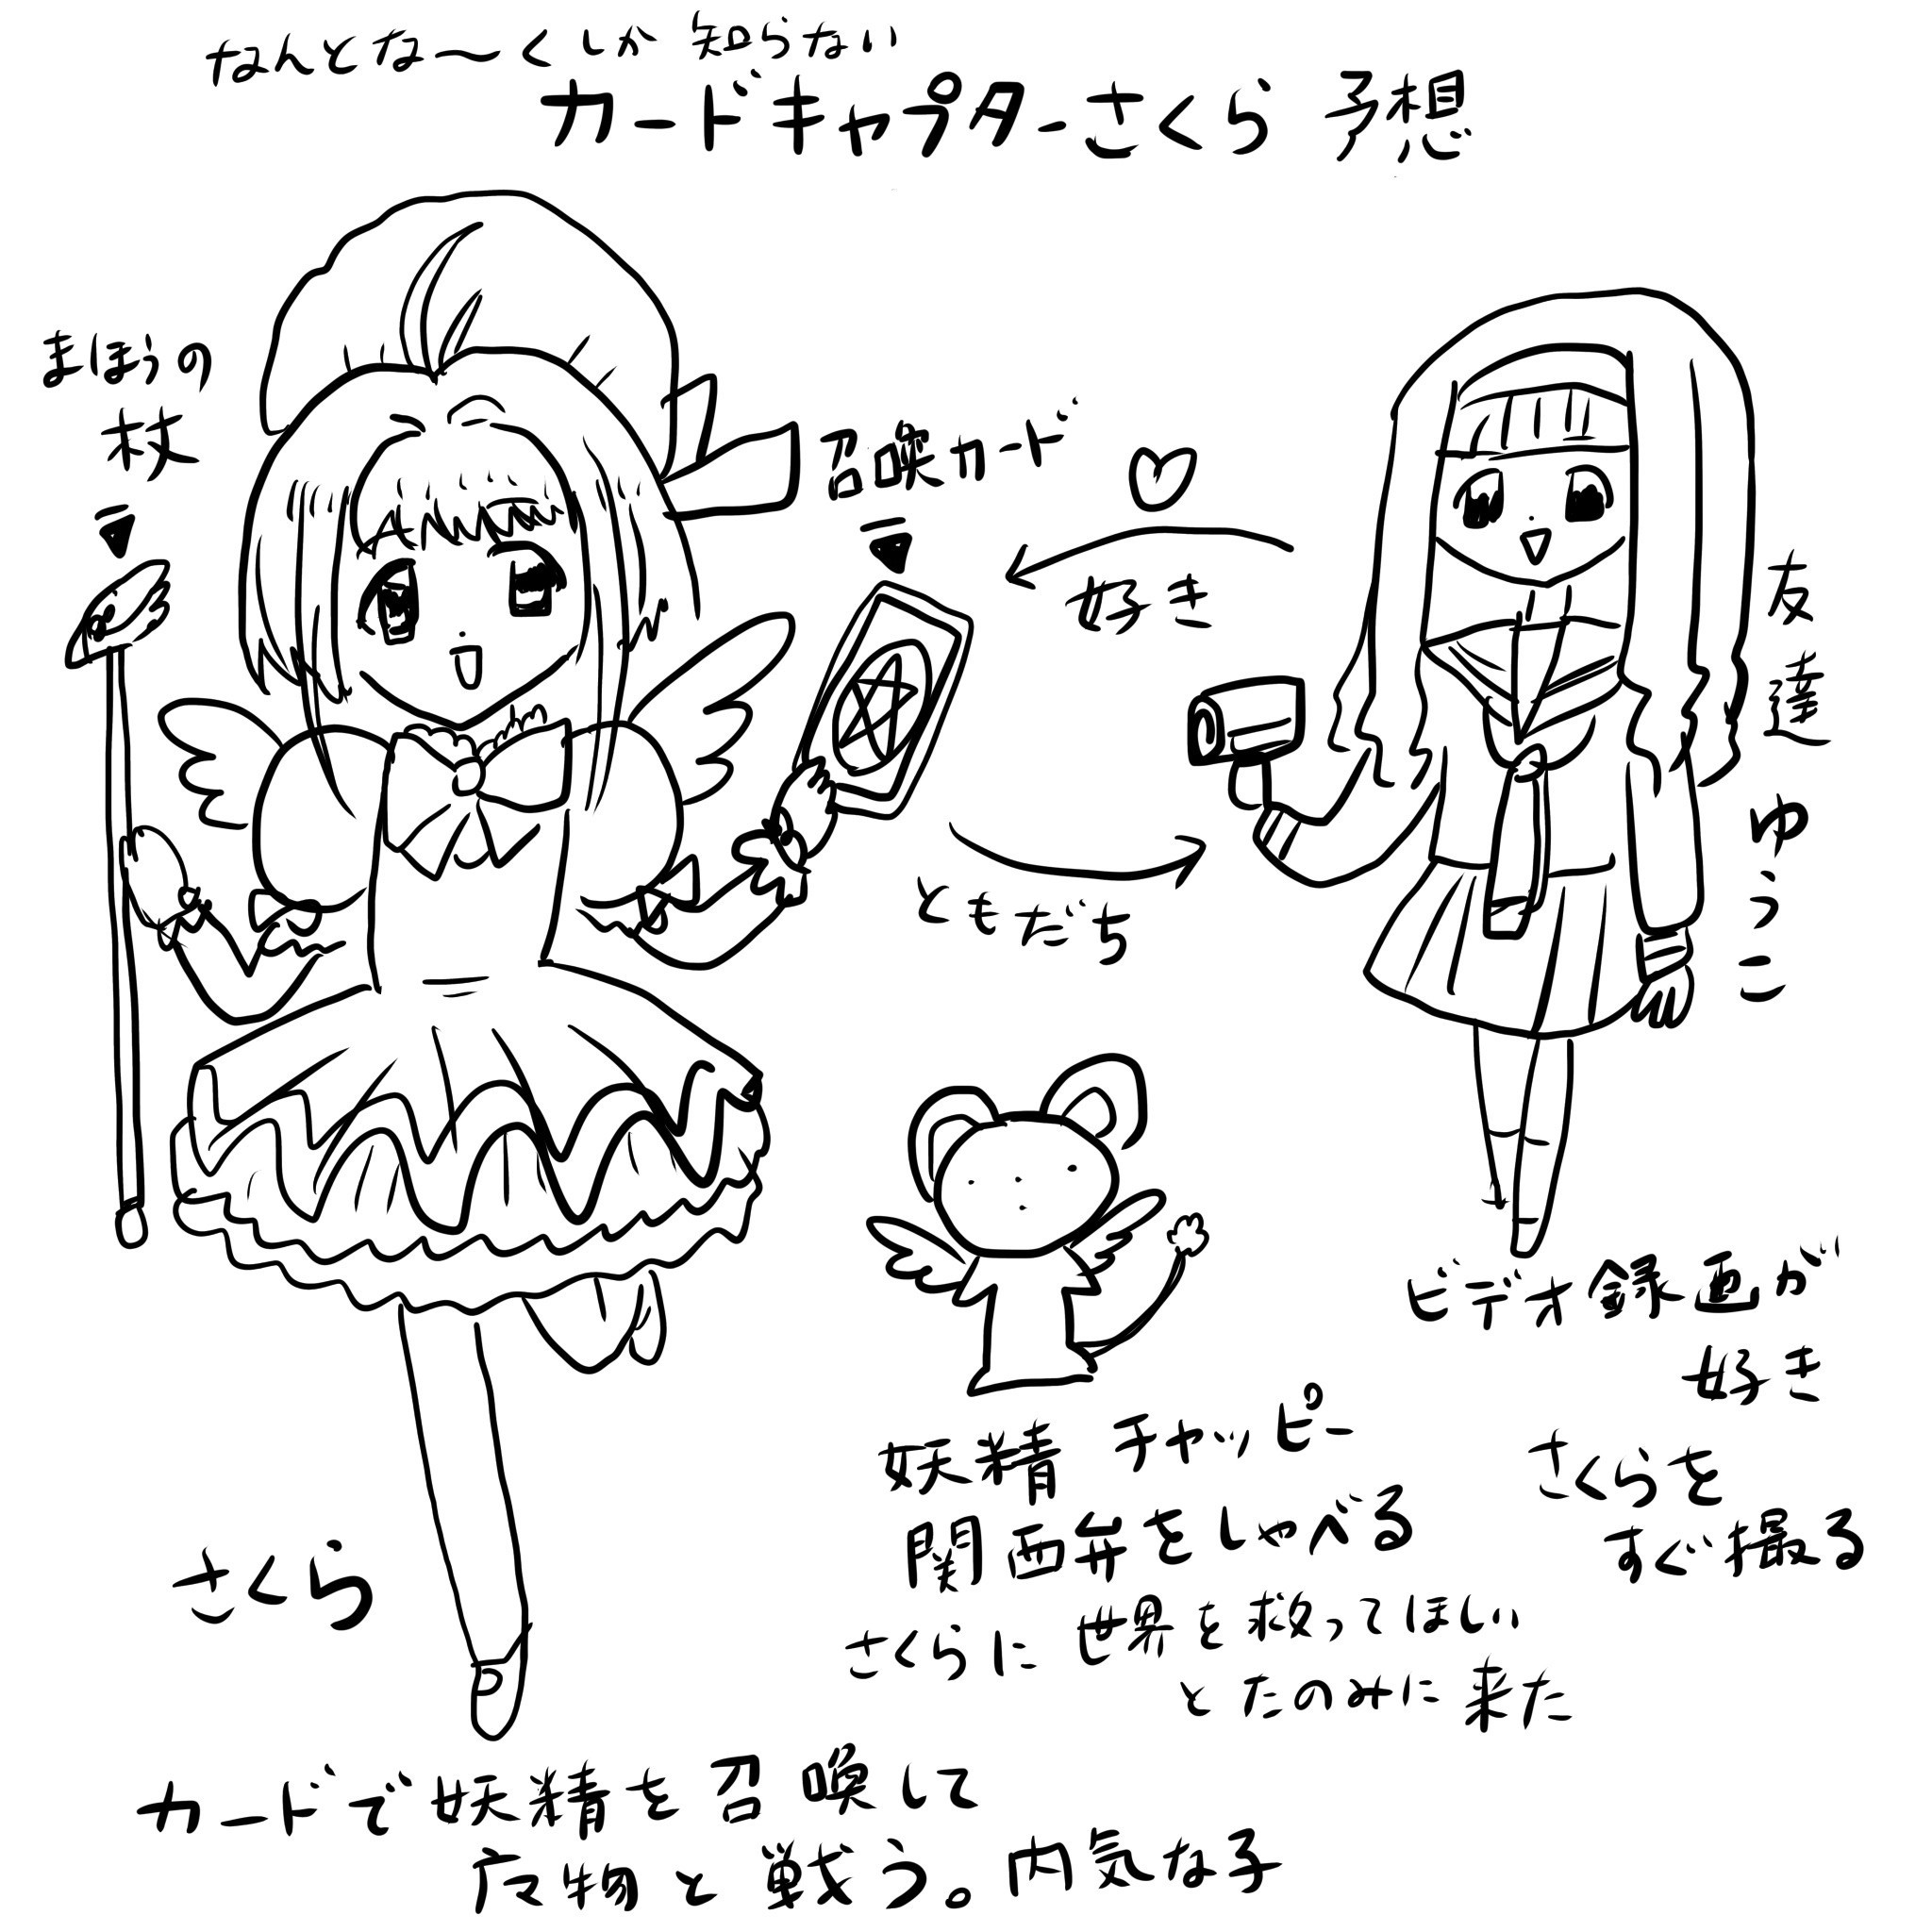 なんとな〜くしか知らない
カードキャプターさくら予想
まほうの
杖
召喚カード
好き
ともだち
友達
ゆうこ
ビデオ録画が
好き
さくらを
すぐ撮る
妖精 チャッピー
関西弁をしゃべる
さくらに世界を救ってほしい
とたのみに来た
さくら
カードで妖精を召喚して
魔物と戦う。内気な子